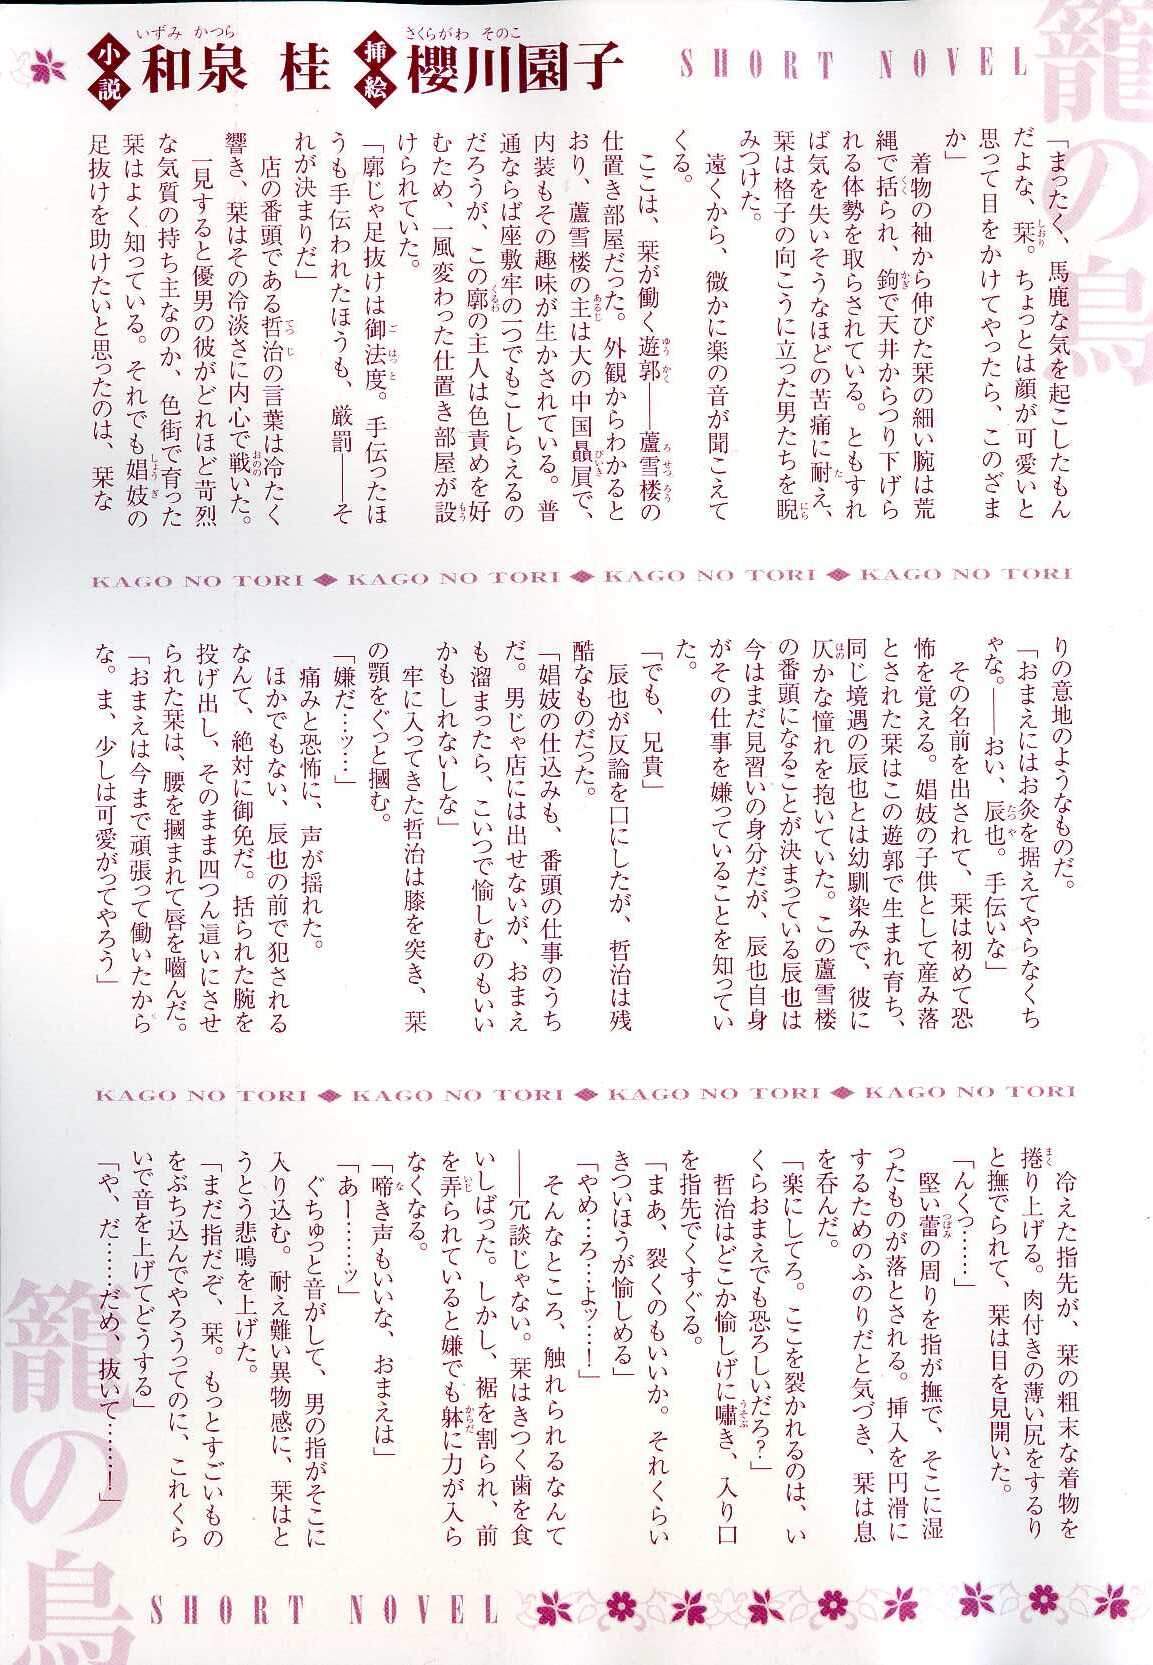 籠の鳥
SHORT NOVEL
さくらがわ そのこ
挿絵 櫻川園子
いずみ かつら
小説 和泉 桂
「まったく、馬鹿な気を起こしたもん
だよな、栞。ちょっとは顔が可愛いと
思って目をかけてやったら、このざま
か」
　着物の袖から伸びた栞の細い腕は荒
縄で括られ、鉤で天井からつり下げら
れる体勢を取らされている。ともすれ
ば気を失いそうなほどの苦痛に耐え、
栞は格子の向こうに立った男たちを睨
みつけた。
　遠くから、微かに楽の音が聞こえて
くる。
　ここは、栞が働く遊郭――蘆雪楼の
仕置き部屋だった。外観からわかると
おり、蘆雪楼の主は大の中国贔屓で、
内装もその趣味が生かされている。普
通ならば座敷牢の一つでもこしらえるの
だろうが、この廓の主人は色責めを好
むため、一風変わった仕置き部屋が設
けられていた。
「廓じゃ足抜けは御法度。手伝ったほ
うも手伝われたほうも、厳罰――そ
れが決まりだ」
　店の番頭である哲治の言葉は冷たく
響き、栞はその冷淡さに内心で戦いた。
　一見すると優男の彼がどれほど苛烈
な気質の持ち主なのか、色街で育った
栞はよく知っている。それでも娼妓の
足抜けを助けたいと思ったのは、栞な
KAGO NO TORI◆KAGO NO TORI◆KAGO NO TORI◆KAGO NO TORI
りの意地のようなものだ。
「おまえにはお灸を据えてやらなくち
ゃな。――おい、辰也。手伝いな」
　その名前を出されて、栞は初めて恐
怖を覚える。娼妓の子供として産み落
とされた栞はこの遊郭で生まれ育ち、
同じ境遇の辰也とは幼馴染みで、彼に
仄かな憧れを抱いていた。この蘆雪楼
の番頭になることが決まっている辰也は
今はまだ見習いの身分だが、辰也自身
がその仕事を嫌っていることを知ってい
た。
「でも、兄貴」
　辰也が反論を口にしたが、哲治は残
酷なものだった。
「娼妓の仕込みも、番頭の仕事のうち
だ。男じゃ店には出せないが、おまえ
も溜まったら、こいつで愉しむのもいい
かもしれないしな」
　牢に入ってきた哲治は膝を突き、栞
の顎をぐっと摑む。
「嫌だ…ッ…」
　痛みと恐怖に、声が揺れた。
　ほかでもない、辰也の前で犯される
なんて、絶対に御免だ。括られた腕を
投げ出し、そのまま四つん這いにさせ
られた栞は、腰を摑まれて唇を嚙んだ。
「おまえは今まで頑張って働いたから
な。ま、少しは可愛がってやろう」
KAGO NO TORI◆KAGO NO TORI◆KAGO NO TORI◆KAGO NO TORI
　冷えた指先が、栞の粗末な着物を
捲り上げる。肉付きの薄い尻をするり
と撫でられて、栞は目を見開いた。
「んくっ……」
　堅い蕾の周りを指が撫で、そこに湿
ったものが落とされる。挿入を円滑に
するためのふのりだと気づき、栞は息
を呑んだ。
「楽にしてろ。ここを裂かれるのは、い
くらおまえでも恐ろしいだろ？」
　哲治はどこか愉しげに嘯き、入り口
を指先でくすぐる。
「まあ、裂くのもいいか。それくらい
きついほうが愉しめる」
「やめ…ろ…よッ…！」
　そんなところ、触れられるなんて
――冗談じゃない。栞はきつく歯を食
いしばった。しかし、裾を割られ、前
を弄られていると嫌でも躰に力が入ら
なくなる。
「啼き声もいいな、おまえは」
「あー……ッ」
　ぐちゅっと音がして、男の指がそこに
入り込む。耐え難い異物感に、栞はと
うとう悲鳴を上げた。
「まだ指だぞ、栞。もっとすごいもの
をぶち込んでやろうってのに、これくら
いで音を上げてどうする」
「や、だ……だめ、抜いて……！」
SHORT NOVEL
籠の鳥